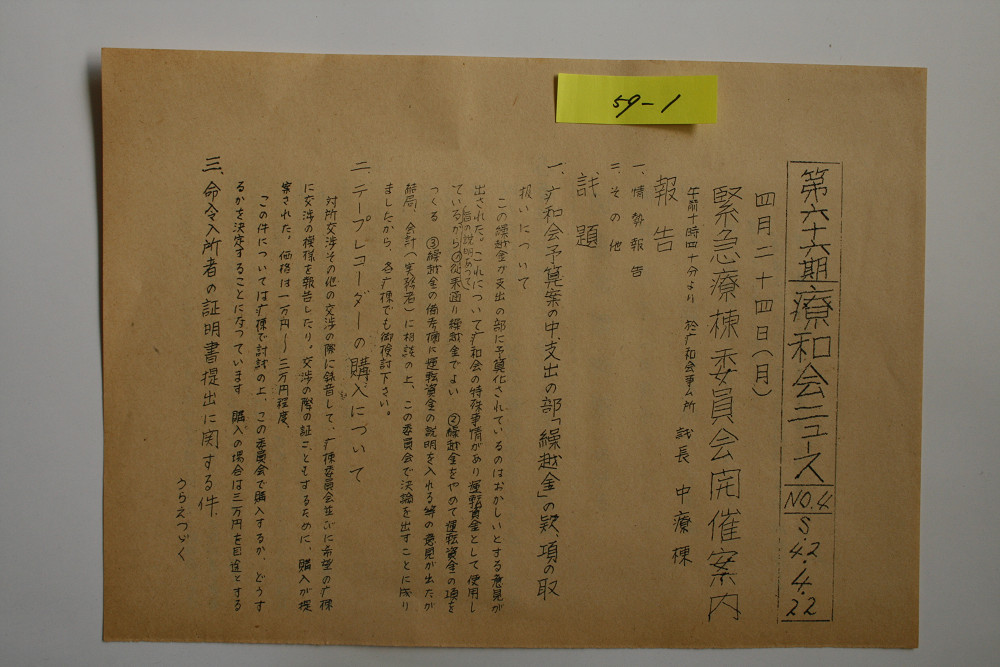 59-1
第六十六期療和会ニュース NO.4 S.42.4.22
四月二十四日(月)
緊急療棟委員会開催案内
午前十時四十分より 於疒和会事ム所 議長 中療棟
報告
一、情勢報告
二、その他
議題
一、疒和会予算案の中、支出の部「繰越金」の欵、項の取
扱いについて
この繰越金が支出の部に予算化されているのはおかしいとする意見が
出された。これについて疒和会の特殊事情があり運転資金として使用し
ている旨の説明あってから①従来通り繰越金でよい ②繰越金をやめて運転資金の項を
つくる ③繰越金の備考欄に運転資金の説明を入れる等の意見が出たが
結局、会計(実務者)に相談の上、この委員会で決論を出すことに成り
ましたから、各疒棟でも御検討下さい。
二、テープレコーダーの購入について
対所交渉その他の交渉の際に録音して、疒棟委員会並びに希望の疒棟
に交渉の模様を報告したり。交渉の際の証こともするために、購入が提
案された。価格は一万円〜三万円程度、
この件については疒棟で討議の上、この委員会で購入するか、どうす
るかを決定することになっています 購入の場合は三万円を目途とする
三、命令入所者の証明書提出に関する件、
うらえつづく